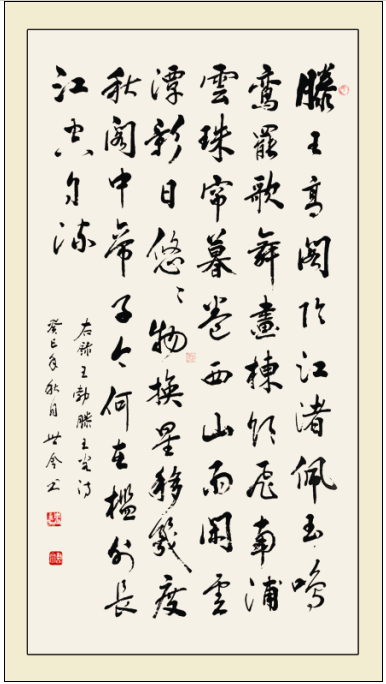 滕王高阁临江渚佩玉鸣
鸾罷歌舞畫棟朝飛南浦
雲珠帘暮卷西山雨閑雲
潭影日悠悠物換星移幾度
秋阁中帝子今何在檻外長
江空自流
右錄王勃滕王阁诗
癸巳年秋月世金书